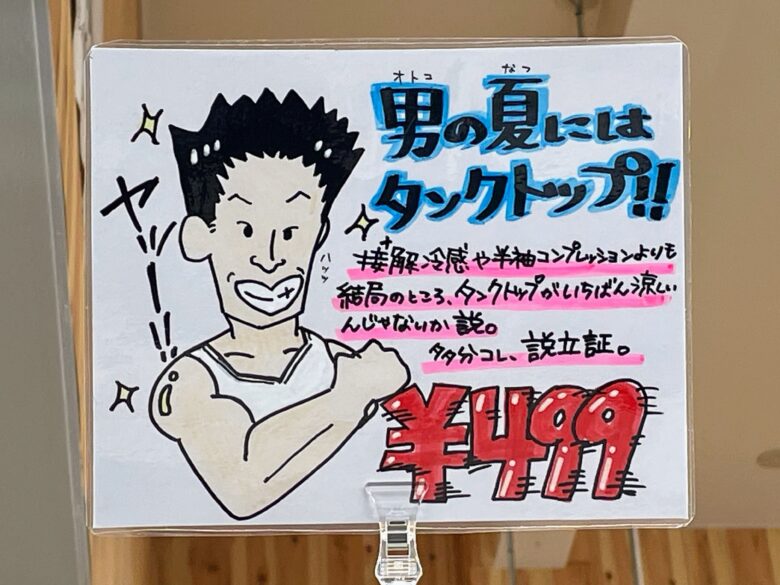 オトコ なつ
男の夏には
タンクトップ!!
ヤーー!!
ハッッ
接触冷感や半袖コンプレッションよりも
結局のところ、タンクトップがいちばん涼しい
んじゃないか説。
多分コレ、説立証。
¥499